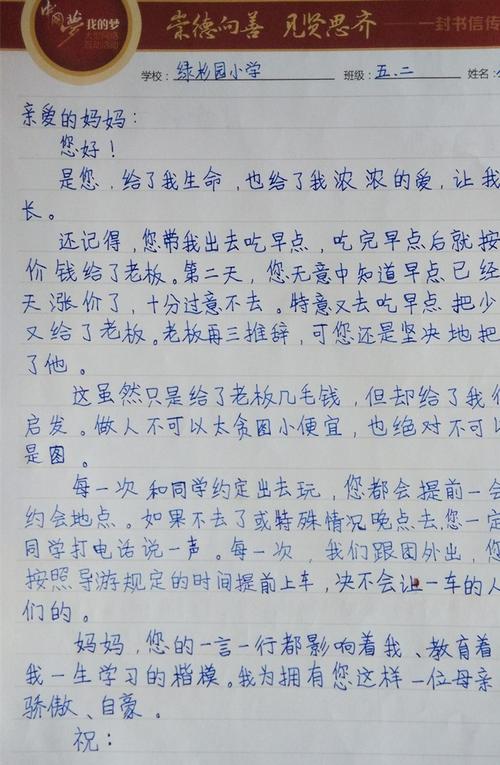 中国梦 我的梦
大型网络
互动活动
崇德向善 见贤思齐
一封书信传
学校: 绿杉园小学 班级: 五.二 姓名:
亲爱的妈妈:
您好!
是您,给了我生命,也给了我浓浓的爱,让我
长。
还记得,您带我出去吃早点,吃完早点后就按
价钱给了老板。第二天,您无意中知道早点已经
天涨价了,十分过意不去。特意又去吃早点把少
又给了老板。老板再三推辞,可您还是坚决地把
了他。
这虽然只是给了老板几毛钱,但却给了我们
启发。做人不可以太贪图小便宜,也绝对不可以
是图。
每一次和同学约定出去玩,您都会提前一会
约会地点。如果不去了或特殊情况晚点去,您一定
同学打电话说一声。每一次,我们跟团外出,您
按照导游规定的时间提前上车,决不会让一车的人
们的。
妈妈,您的一言一行都影响着我、教育着
我一生学习的楷模。我为拥有您这样一位母亲
骄傲、自豪。
祝: